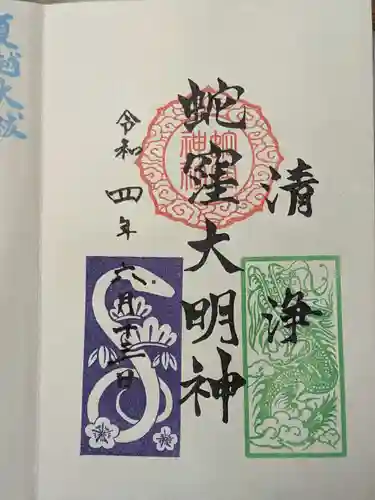 清浄
蛇窪大明神
令和四年六月十三日
夏越大祓